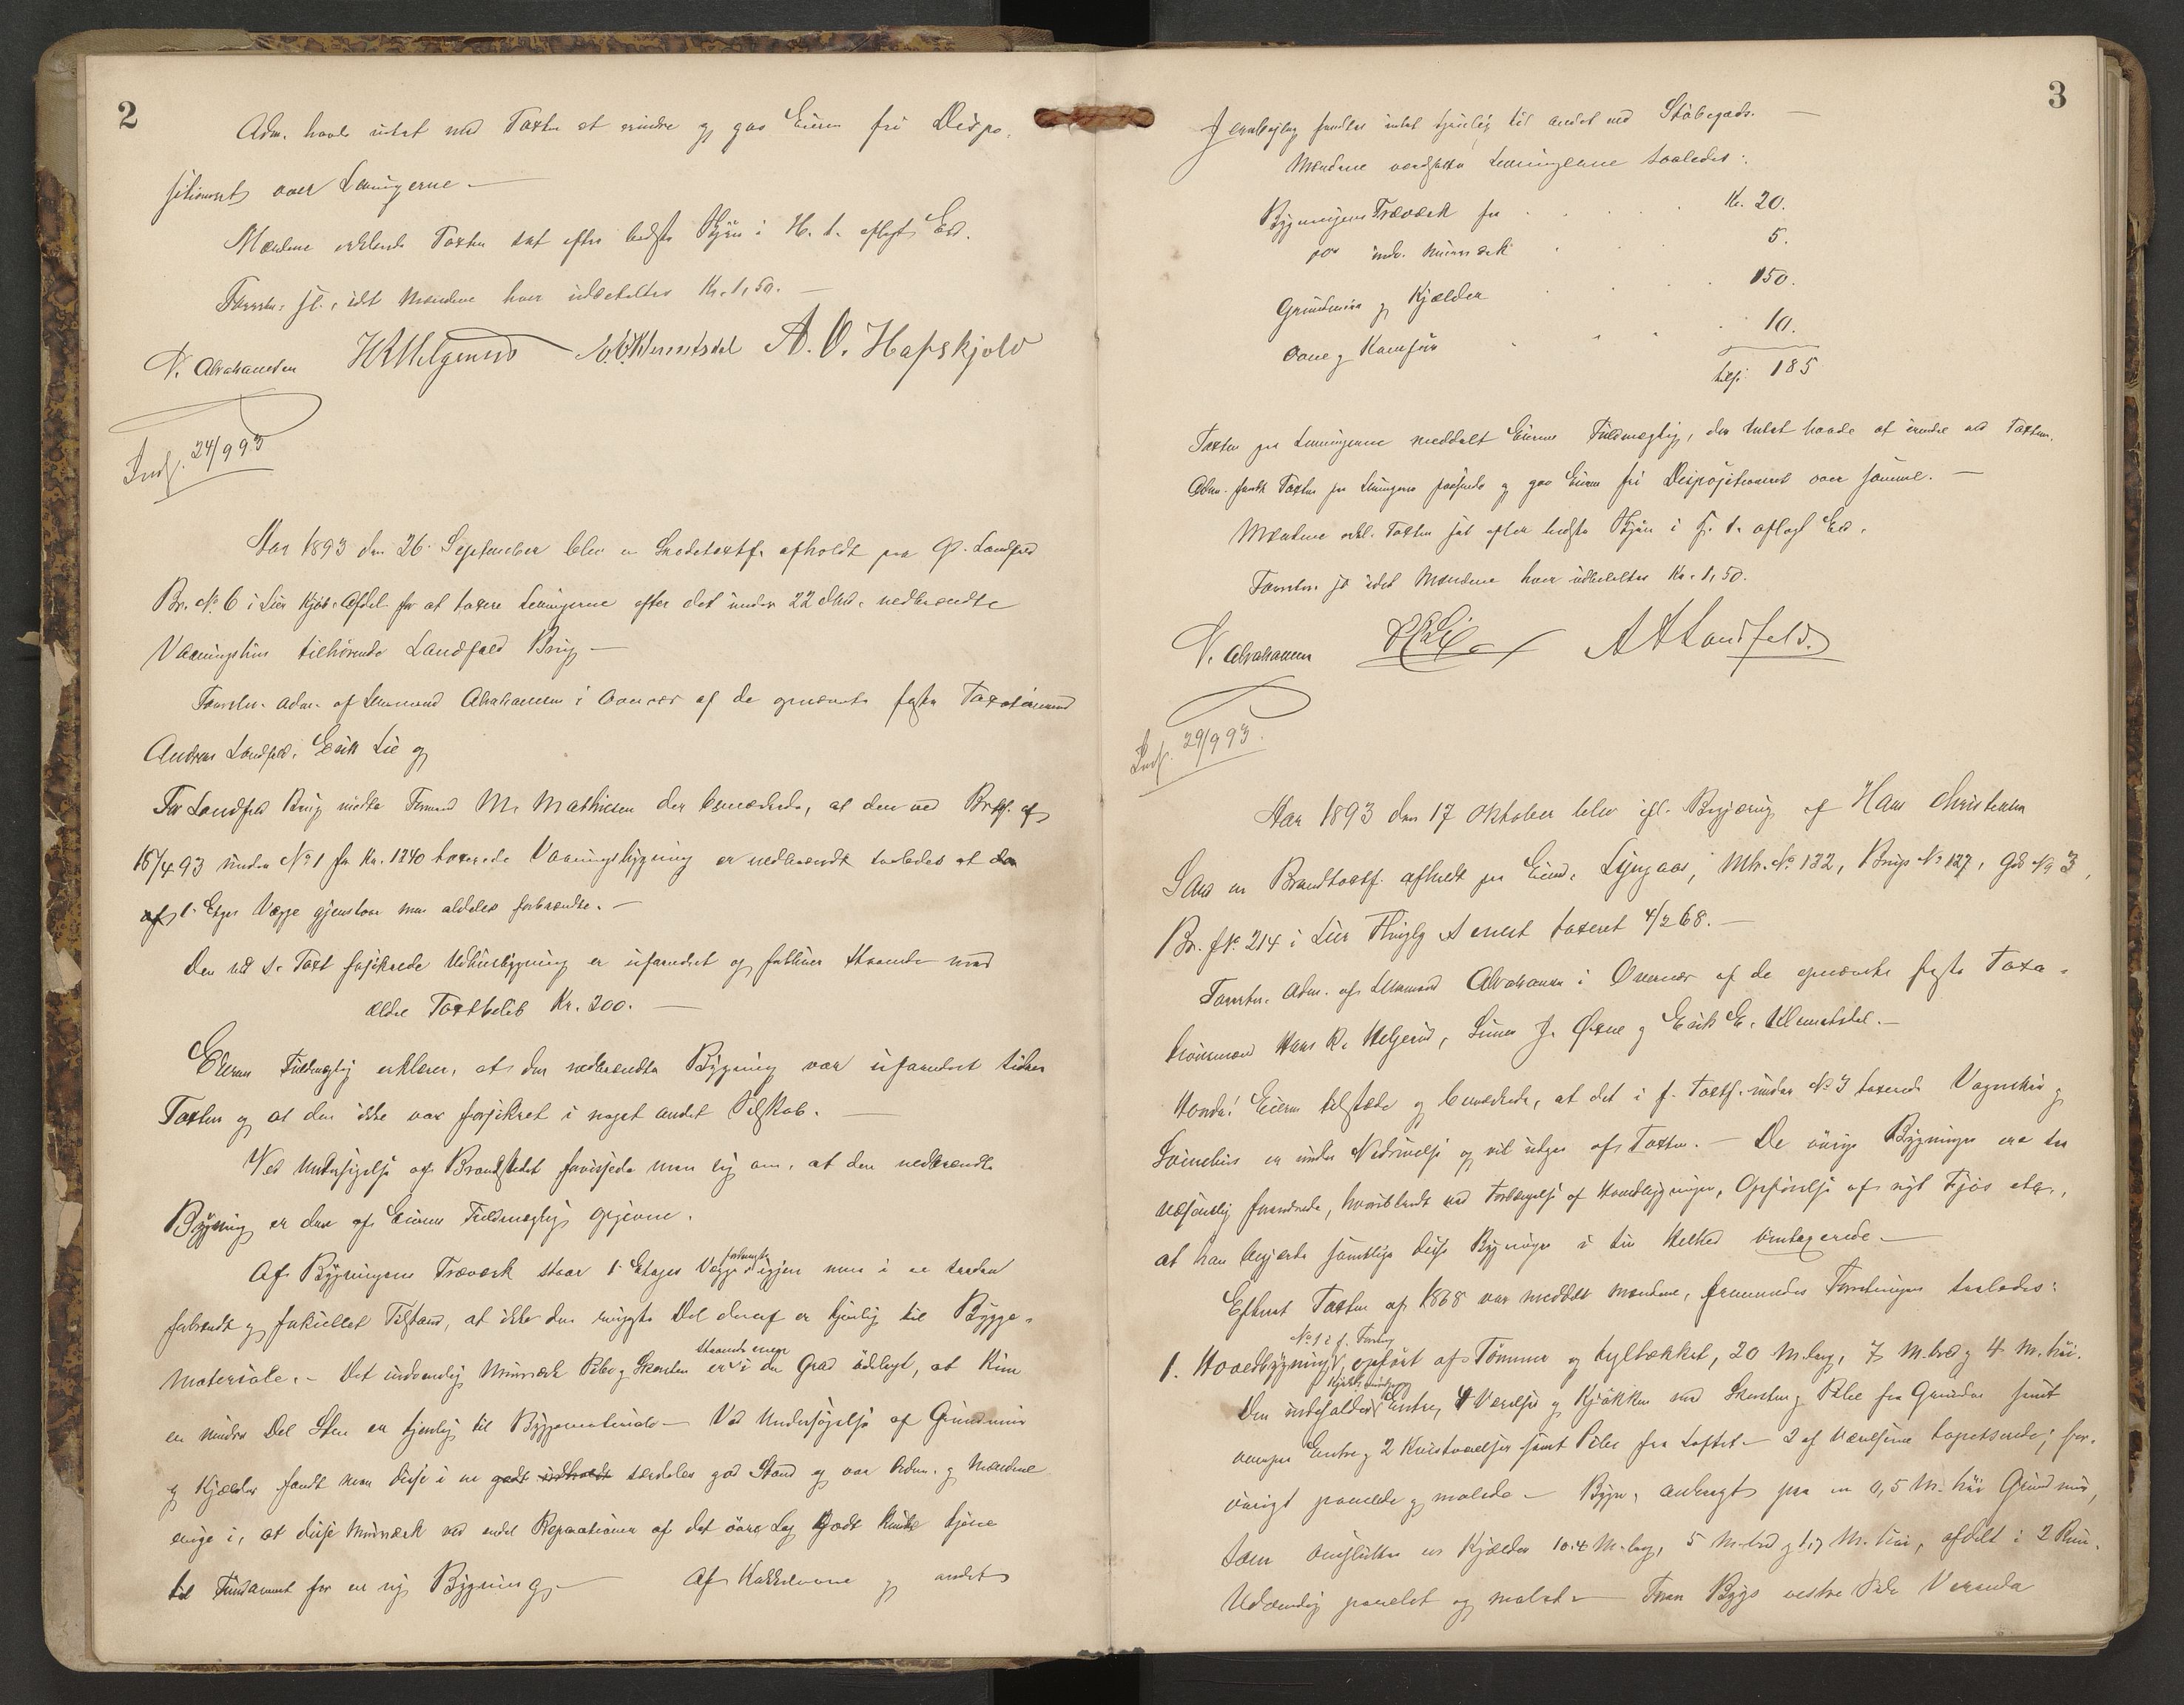 2
Adm. havde intet ved Taxten at erindre og gav Eieren fri Dispo-
sitionsret over Levningerne —
Mændene erklærede Taxten sat efter bedste Skjøn i H. t. aflagt Ed.
Forretn. sl., idet Mændene hver udbetaltes Kr. 1,50. —
N. Abrahamsen H R Helgerud E. E. Klemetsdal A. O. Hapskjold
Indf. 24/9 93
Aar 1893 den 26. September blev en Skadetaxtf. afholdt paa G. Landfald
Br. No. 6 i Lier Kjøb. Afdel. for at taxere Levningerne efter det under 22 dns. nedbrændte
Vaaningshus tilhørende Landfald Brug —
Forretn. adm. af Lensmand Abrahamsen i Overvær af de opnævnte faste Taxationsmænd
Andreas Landfald, Erik Lie og
For Landfald Brug mødte Formand M. Mathisen der bemærkede, at den ved Brtf. af
18/4 93 under No. 1 for Kr. 1240 taxerede Vaaningsbygning er nedbrændt saaledes at
af 1. Etages Vægge gjenstaar men aldeles forbrændte. —
Den ved s. Taxt forsikrede Udhusbygning er uforandret og forbliver staaende med
ældre Taxtbeløb Kr. 200. —
Eierens Fuldmægtig erklærer, at den nedbrændte Bygning var uforandret siden
Taxten og at den ikke var forsikret i noget andet Selskab. —
Ved Undersøgelse af Brandstedet forvissede man sig om, at den nedbrændte
Bygning er den af Eierens Fuldmægtig opgivne.
Af Bygningens Træværk staar 1. Etages Vægge igjen men i en saadan
forbrændt og forkullet Tilstand, at ikke den ringeste Del deraf er tjenlig til Bygge-
materiale. — Det indvendig Murværk Pibe og Skorsten er i den Grad ødelagt, at kun
staaende men
en mindre Del Sten er tjenlig til Byggemateriale — Ved Undersøgelse af Grundmur
og Kjælder fandt man disse i en godt særdeles god Stand og var Adm. og Mændene
enige i, at disse Murværk ved endel Reparationer af det øvre Lag godt kunde tjene
til Fundament for en ny Bygning — Af Kakkelovne og andet
3
Jernbeslag fandtes intet tjenlig til andet end Støbegods. —
Mændene værdsatte Levningerne saaledes:
Bygningens Træværk for . . . Kr. 20.
do indv. Murværk . . . 5.
Grundmur og Kjælder . . . 150.
Ovne og Komfur . . . 10.
tils. 185
Taxten paa Levningerne meddelt Eierens Fuldmægtig, der Intet havde at erindre ved Taxten.
Adm. fandt Taxten paa Levningerne passende og gav Eieren fri Dispositionsret over samme. —
Mændene erkl. Taxten sat efter bedste Skjøn i H. t. aflagt Ed.
Forretn. sl. idet Mændene hver udbetaltes Kr. 1,50.
N. Abrahamsen E. Lie A A Landfald
Indf. 29/9 93.
Aar 1893 den 17 Oktober blev ifl. Begjæring af Hans Christensen
Saas en Brandtaxtf. afholdt paa Eiend. Lyngaas, Mtr. No. 132, Brugs No 127, Gd No 3,
Br. fr. 214 i Lier Thinglg senest taxeret 4/2 68. —
Forretn. Adm. af Lensmand Abrahamsen i Overvær af de opnævnte faste Taxa-
tionsmænd Hans R. Helgerud, Simen J. Øxne og Erik E. Klemetsdal. —
Eieren tilstede og bemærkede, at det i f. Taxtf. under No 3 taxerede Vognskur og
Svinehus er under Nedrivelse og vil udgaa af Taxten. — De øvrige Bygninger ere saa
væsentlig forandrede, hvoriblandt ved Forlængelse af Hovedbygningen, Opførelse af nyt Fjøs etc.,
at han begjærte samtlige disse Bygninger i sin Helhed omtaxerede. —
Efterat Taxten af 1868 var meddelt Mændene, fremmedes Forretningen saaledes:
No 1 i f. Forretn
1. Hovedbygning, opført af Tømmer og tyltækket, 20 M. lang, 7 M. bred og 4 M. høi.
Den indeholder Entre, 4 Værelser og Kjøkken med Skorsten og Pibe fra Grunden samt
ovenpaa Entre og 2 Kvistværelser samt Piber fra Loftet — 2 af Værelserne tapetserede; for-
øvrigt panelede og malede — Bygn. anbragt paa en 0,5 M. høi Grundmur,
som omslutter en Kjælder 10.4 M. lang, 5 M. bred og 1,7 M. høi, afdelt i 2 Rum.
Udvendig panelet og malet. — Foran Bygs vestre Side Veranda